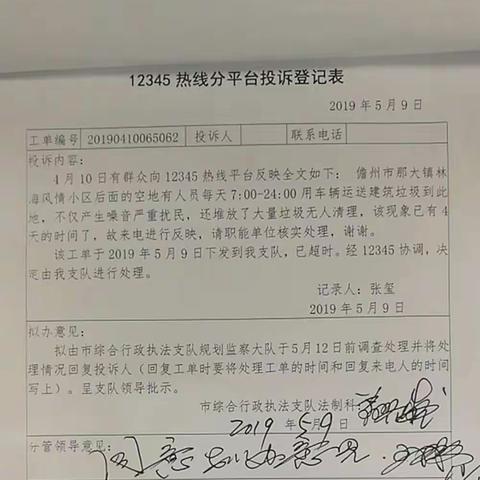 12345 热线分平台投诉登记表
2019 年 5 月 9 日
工单编号 20190410065062 投诉人 联系电话
投诉内容：
4 月 10 日有群众向 12345 热线平台反映全文如下： 儋州市那大镇林
海风情小区后面的空地有人员每天 7:00-24:00 用车辆运送建筑垃圾到此
地，不仅产生噪音严重扰民，还堆放了大量垃圾无人清理，该现象已有 4
天的时间了，故来电进行反映，请职能单位核实处理，谢谢。
该工单于 2019 年 5 月 9 日下发到我支队，已超时。经 12345 协调，决
定由我支队进行处理。
记录人：张玺
2019 年 5 月 9 日
拟办意见：
拟由市综合行政执法支队规划监察大队于 5 月 12 日前调查处理并将处
理情况回复投诉人（回复工单时要将处理工单的时间和回复来电人的时间
写上）。呈支队领导批示。
市综合行政执法支队法制科：
2019 年 5 月 9 日
分管领导意见：
同意拟办意见.